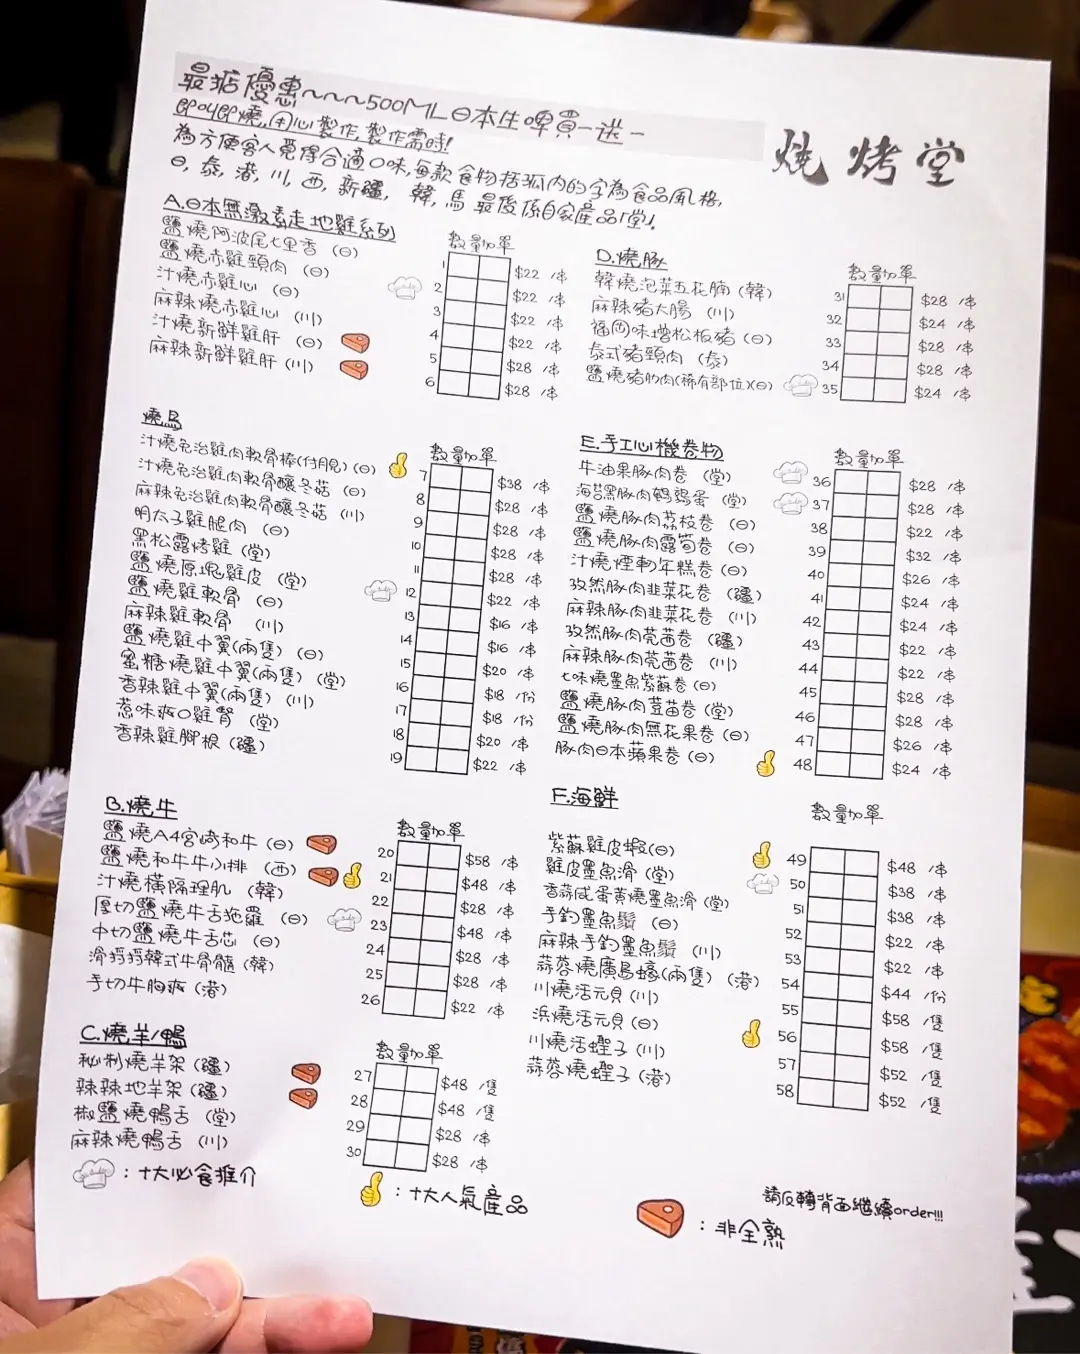 最掂優惠~~~500ML日本生啤買一送一
燒烤堂
即叫即燒,用心製作,製作需時!
為方便客人覓得合適口味,每款食物括弧內的字為食品風格,
日,泰,港,川,西,新疆,韓,馬 最後係自家產品「堂」!
A.日本無激素走地雞系列
數量 加單
鹽燒阿波尾七里香 (日) 1 $22 /串
鹽燒赤雞頸肉 (日) 2 $22 /串
汁燒赤雞心 (日) 3 $22 /串
麻辣燒赤雞心 (川) 4 $22 /串
汁燒新鮮雞肝 (日) 5 $28 /串
麻辣新鮮雞肝 (川) 6 $28 /串
燒鳥
數量 加單
汁燒免治雞肉軟骨棒(付月見) (日) 7 $38 /串
汁燒免治雞肉軟骨釀冬菇 (日) 8 $28 /串
麻辣免治雞肉軟骨釀冬菇 (川) 9 $28 /串
明太子雞腿肉 (日) 10 $28 /串
黑松露烤雞 (堂) 11 $28 /串
鹽燒原塊雞皮 (堂) 12 $22 /串
鹽燒雞軟骨 (日) 13 $16 /串
麻辣雞軟骨 (川) 14 $16 /串
鹽燒雞中翼(兩隻) (日) 15 $20 /串
蜜糖燒雞中翼(兩隻) (堂) 16 $18 /份
香辣雞中翼(兩隻) (川) 17 $18 /份
惹味爽口雞腎 (堂) 18 $20 /串
香辣雞腳根 (疆) 19 $22 /串
B.燒牛
數量 加單
鹽燒A4宮崎和牛 (日) 20 $58 /串
鹽燒和牛牛小排 (西) 21 $48 /串
汁燒橫隔理肌 (韓) 22 $28 /串
厚切鹽燒牛舌拖羅 (日) 23 $48 /串
中切鹽燒牛舌芯 (日) 24 $28 /串
滑捋捋韓式牛骨髓 (韓) 25 $28 /串
手切牛胸爽 (港) 26 $22 /串
C.燒羊/鴨
數量 加單
秘制燒羊架 (疆) 27 $48 /隻
辣辣地羊架 (疆) 28 $48 /隻
椒鹽燒鴨舌 (堂) 29 $28 /串
麻辣燒鴨舌 (川) 30 $28 /串
D.燒豚
數量 加單
韓燒泡菜五花腩 (韓) 31 $28 /串
麻辣豬大腸 (川) 32 $24 /串
福岡味增松板豬 (日) 33 $28 /串
泰式豬頸肉 (泰) 34 $28 /串
鹽燒豬肋肉(稀有部位)(日) 35 $24 /串
E.手工心機卷物
數量 加單
牛油果豚肉卷 (堂) 36 $28 /串
海苔黑豚肉鵪鶉蛋 (堂) 37 $28 /串
鹽燒豚肉荔枝卷 (日) 38 $22 /串
鹽燒豚肉露筍卷 (日) 39 $32 /串
汁燒煙靭年糕卷 (日) 40 $26 /串
孜然豚肉韭菜花卷 (疆) 41 $24 /串
麻辣豚肉韭菜花卷 (川) 42 $24 /串
孜然豚肉莞茜卷 (疆) 43 $22 /串
麻辣豚肉莞茜卷 (川) 44 $22 /串
七味燒墨魚紫蘇卷 (日) 45 $28 /串
鹽燒豚肉荳苗卷 (堂) 46 $28 /串
鹽燒豚肉無花果卷 (日) 47 $26 /串
豚肉日本蘋果卷 (日) 48 $24 /串
F.海鮮
數量 加單
紫蘇雞皮蝦(日) 49 $48 /串
雞皮墨魚滑 (堂) 50 $38 /串
香蒜咸蛋黃燒墨魚滑 (堂) 51 $38 /串
手釣墨魚鬚 (日) 52 $22 /串
麻辣手釣墨魚鬚 (川) 53 $22 /串
蒜蓉燒廣島蠔(兩隻) (港) 54 $44 /份
川燒活元貝 (川) 55 $58 /隻
浜燒活元貝 (日) 56 $58 /隻
川燒活蟶子 (川) 57 $52 /隻
蒜蓉燒蟶子 (港) 58 $52 /隻
:十大必食推介
:十大人氣產品
:非全熟
請反轉背面繼續order!!!